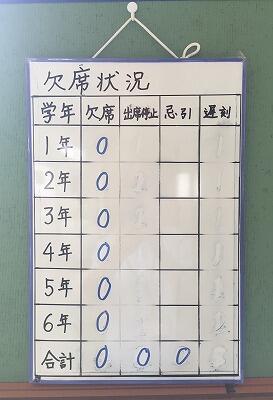 欠席状況
学年 欠席 出席停止 忌引 遅刻
1年 0
2年 0
3年 0
4年 0
5年 0
6年 0
合計 0 0 0